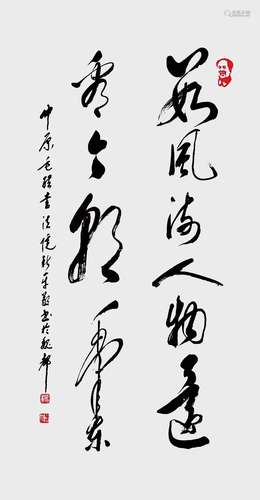 数风流人物还
看今朝 毛泽东
中原毛体书法院新平敬书於魏都